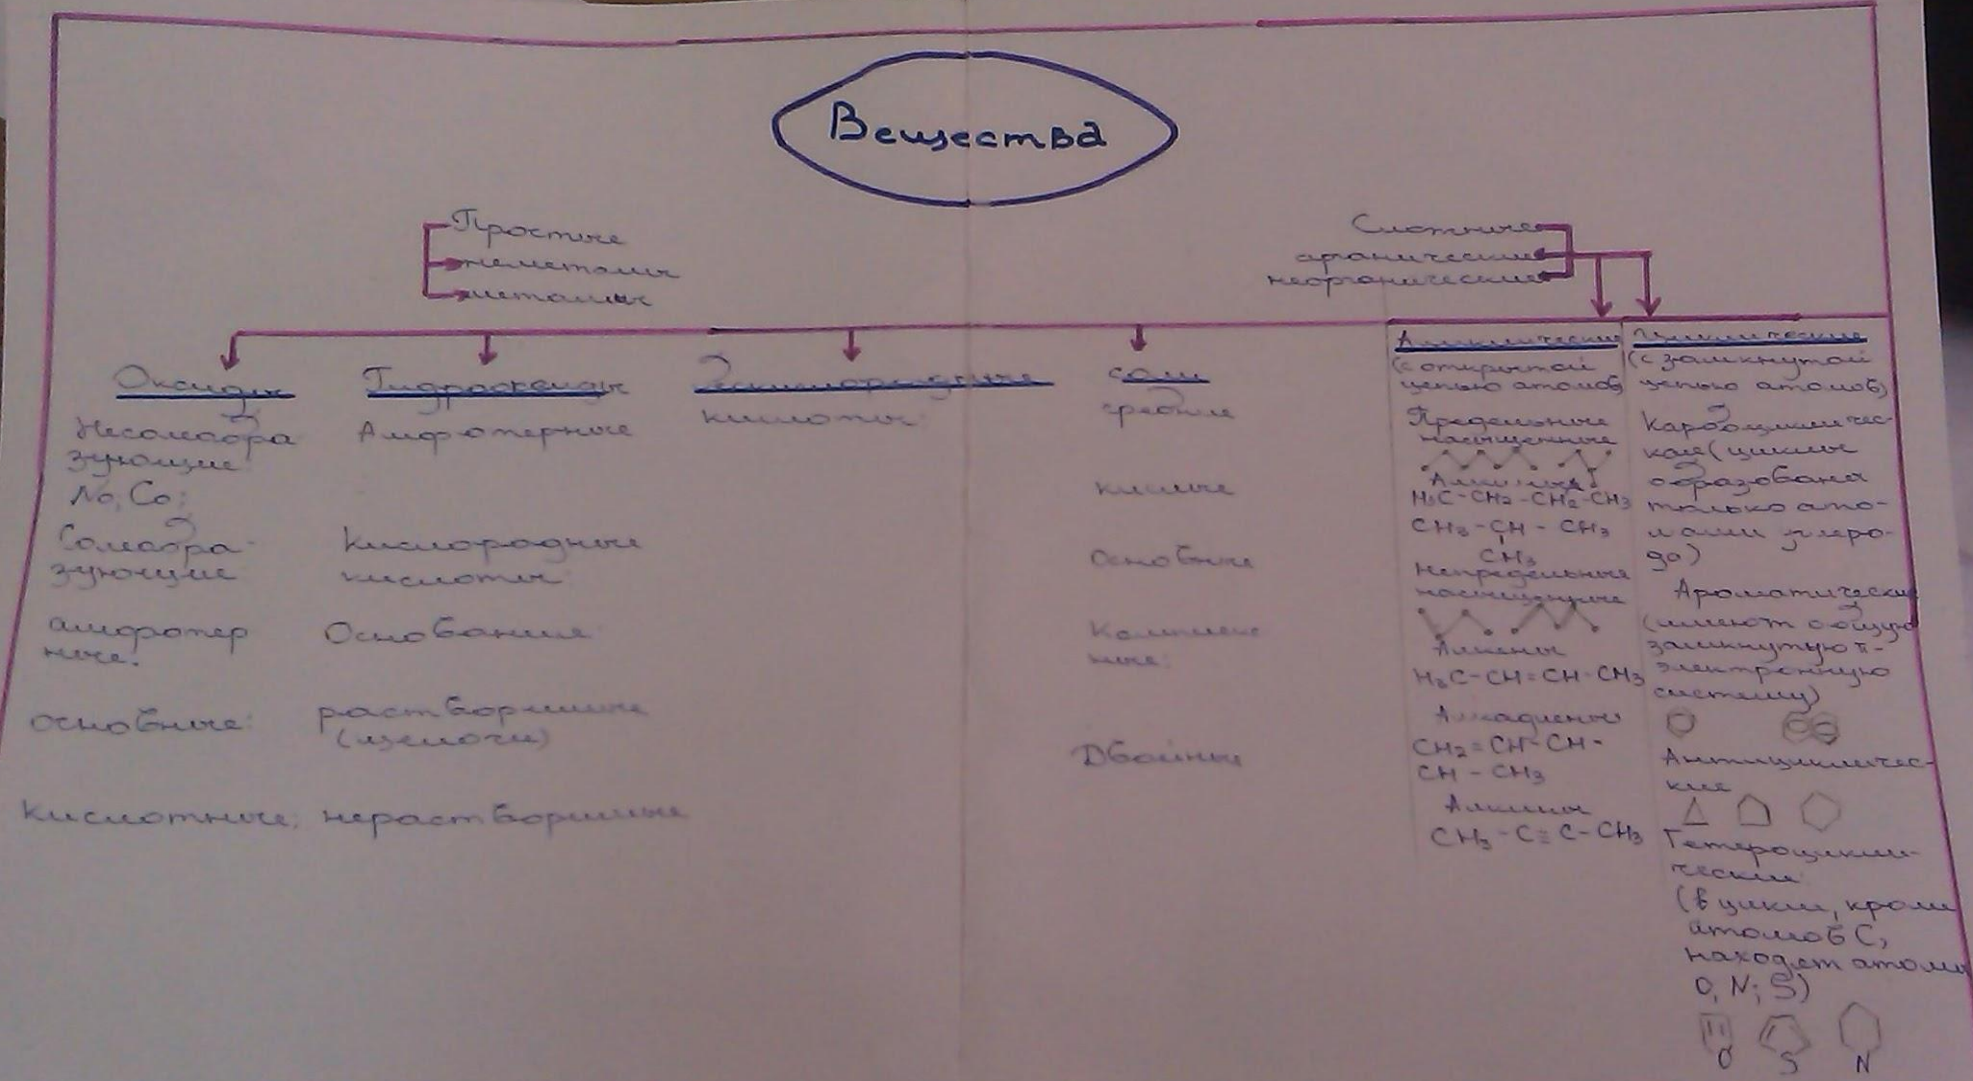 Вещества
Простые
неметаллы
металлы
Сложные
органические
неорганические
Оксиды
Несолеобра
зующие
No, Co;
Солеобра-
зующие
амфотер
ные:
основные:
кислотные:
Гидроксиды
Амфотерные
Кислородные
кислоты:
Основания
растворимые
(щелочи)
нерастворимые
Бескислородные
кислоты:
соли
средние
кислые
Основные
Комплекс
ные:
Двойные
Ациклические
(с открытой
цепью атомов)
Предельные
насыщенные
Алканы
H3C-CH2-CH2-CH3
CH3-CH-CH3
CH3
Непредельные
насыщенные
Алкены
H3C-CH=CH-CH3
Алкадиены
CH2=CH-CH-
CH-CH3
Алкины
CH3-C≡C-CH3
Циклические
(с замкнутой
цепью атомов)
Карбоцикличес-
кие (циклы
образованы
только ато-
мами углеро-
да)
Ароматические
(имеют общую
замкнутую π-
электронную
систему)
Антицикличес-
кие
Гетероцикли-
ческие
(в цикле, кроме
атомов C,
находят атомы
O, N; S)
O
S
N